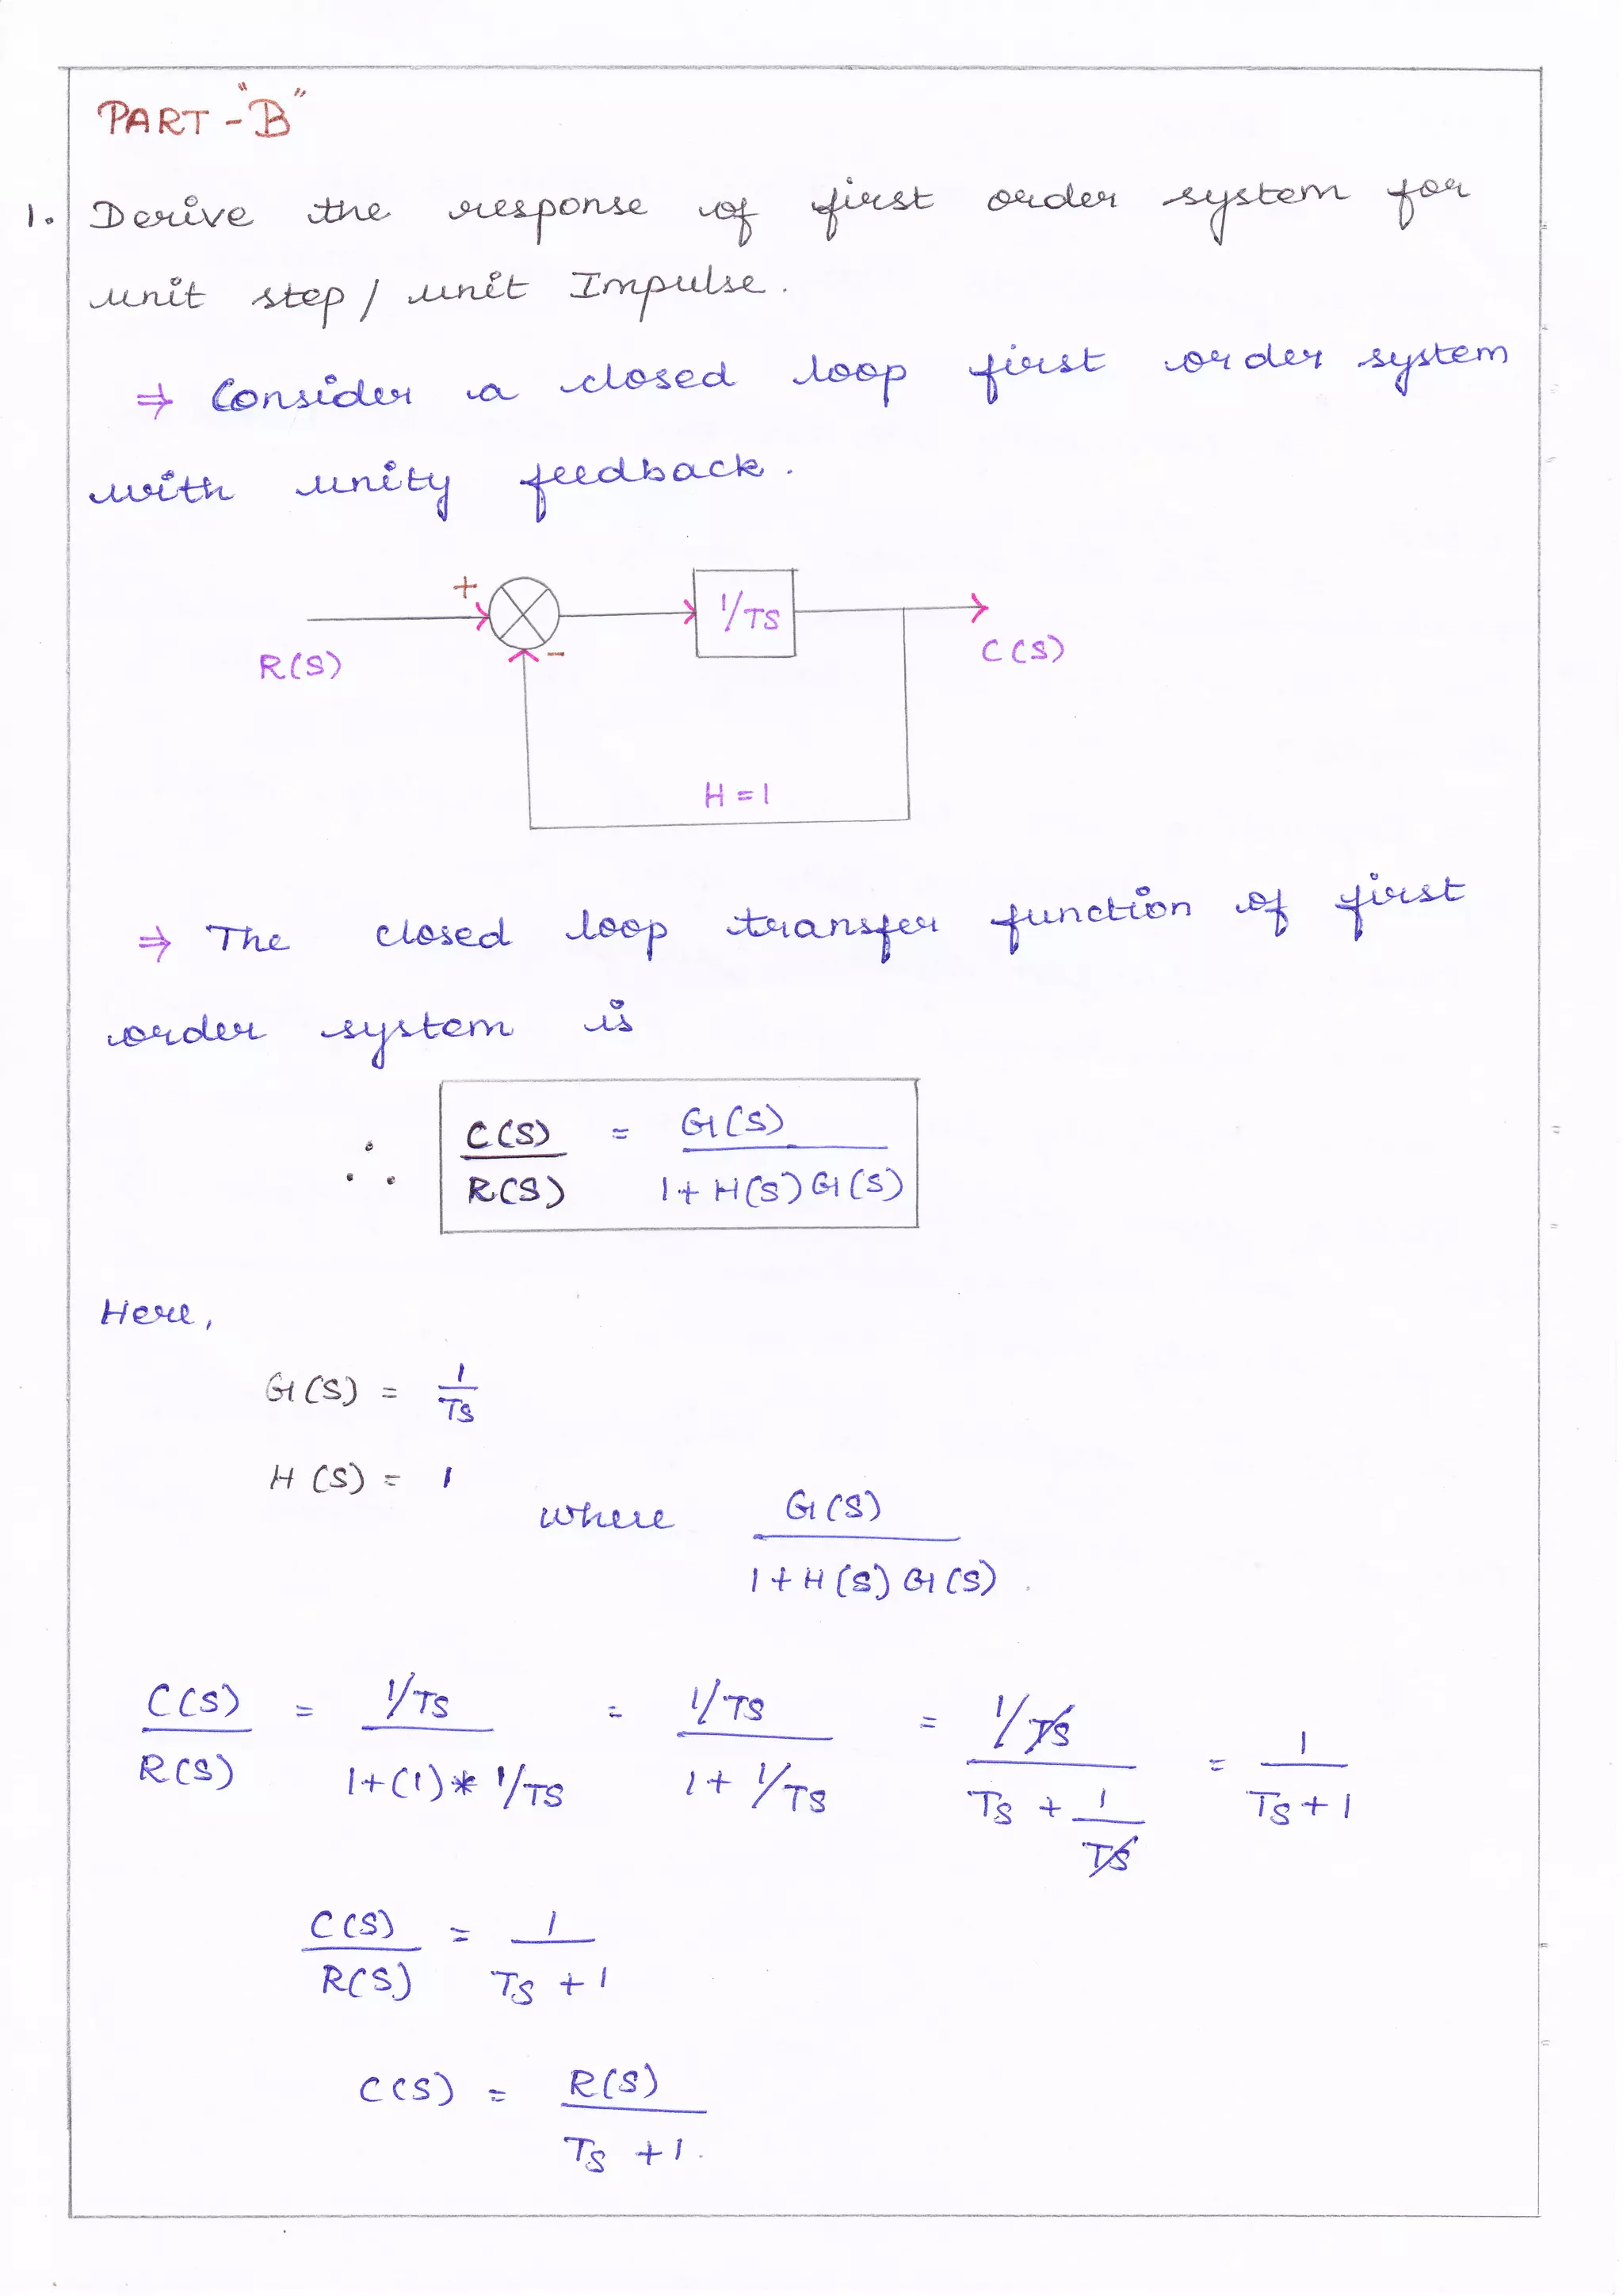 PART - "B"
1. Derive the response of first order system for
unit step / unit Impulse.
⇒ Consider a closed loop first order system
with unity feedback.
+
1/TS
-
R(S)
C(S)
H = 1
⇒ The closed loop transfer function of first
order system is
∴ C(S)/R(S) = G(S)/1+H(S)G(S)
Here,
G(S) = 1/TS
H(S) = 1
where G(S)/1+H(S)G(S).
C(S)/R(S) = 1/TS / 1+(1)*1/TS = 1/TS / 1+1/TS = 1/TS / TS+1/TS = 1/TS+1
C(S)/R(S) = 1/TS+1
C(S) = R(S)/TS+1.